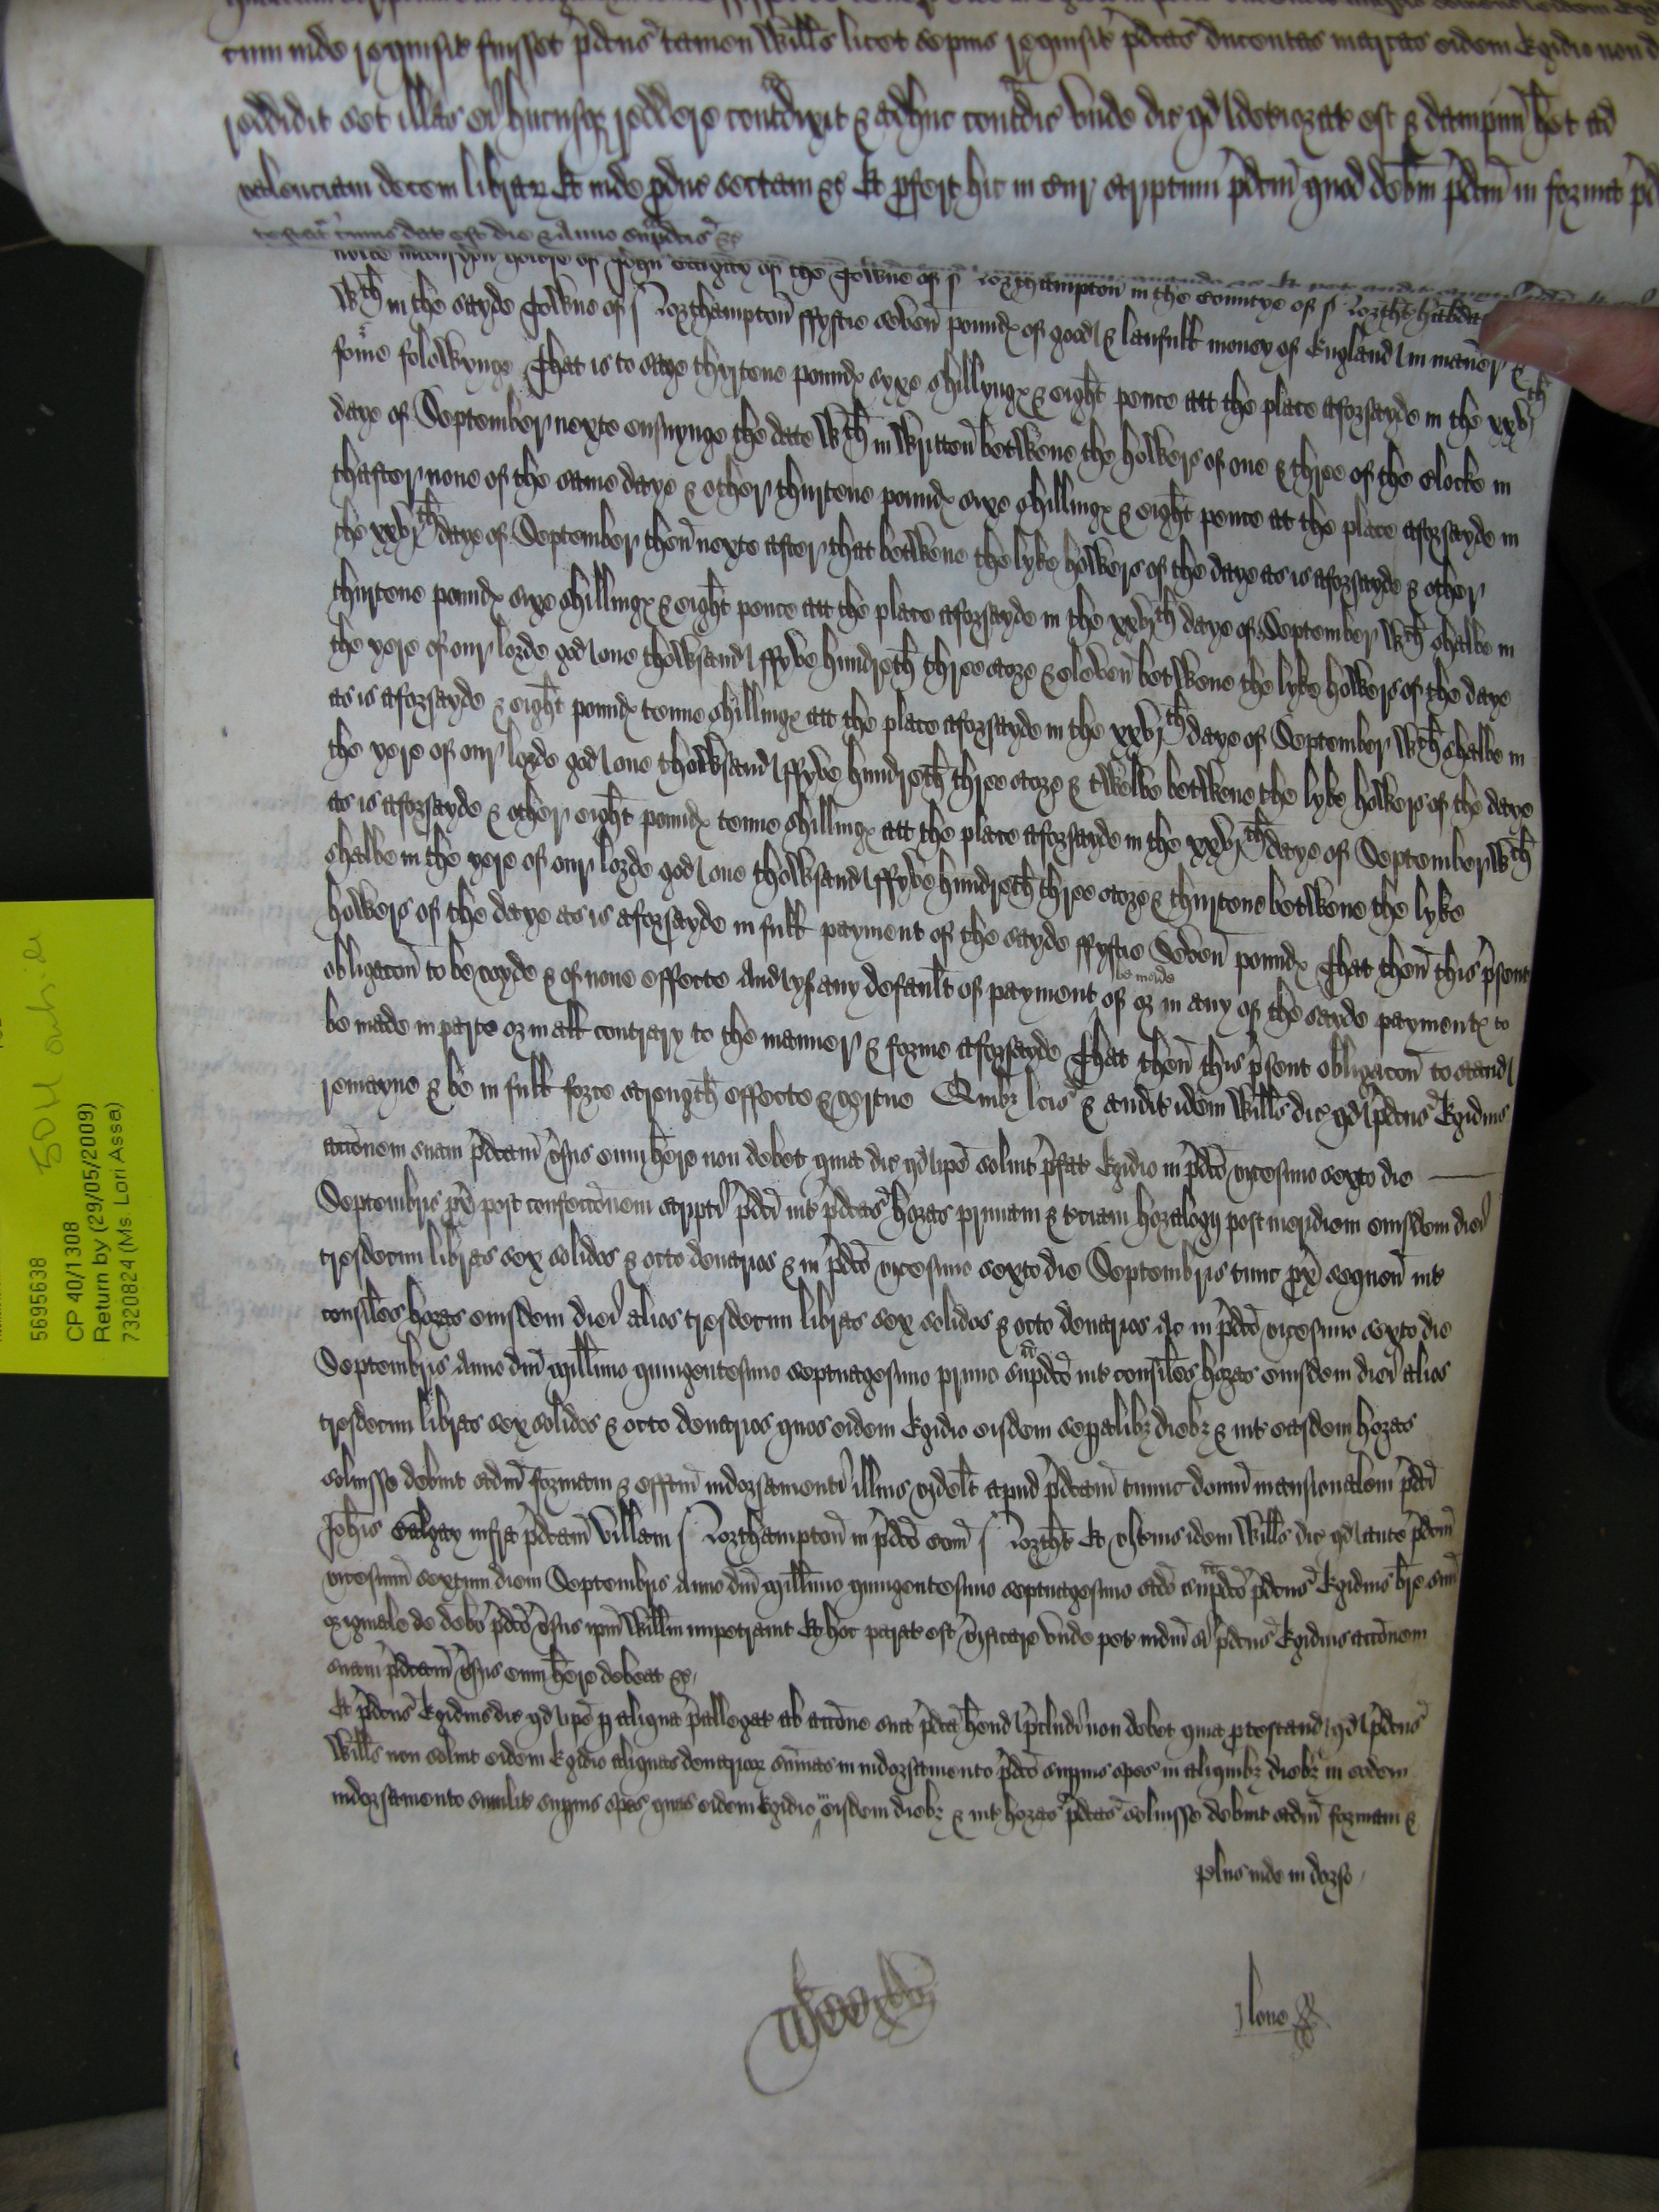 cum inde requisit fuisset p̄dcus tamen Willm̄s licet sepius requisit p̄dcas ducentas marcas eidem Egidio non
reddidit set illas ei hucusqz reddere contradixit & adhuc contradic Unde dic qd deteriorat est & dampnu h̄et ad
valenciam decem librarz Et inde produc sectam &c Et profert hic in Cur scriptum p̄dcm quod debm p̄dcm in forma
testat cuius dat est die & Anno sup̄adcis &c
W^th in the sayde Towne of Northampton ffyftie seven poundx of good & laufull money of England in maner &
forme folowynge That is to saye thyrtene poundx syxe shillyngx & eight pence att the place aforsayde in the xxvj^th
daye of September nexte ensuynge the date W^th in Written betwene the howers of one & three of the Clocke in
thafter none of the same daye & other thirtene poundx sixe shillingx & eight pence at the place aforsayde in
the xxvj^th daye of September then nexte after that betwene the lyke howers of the daye as is aforsayde & other
thirtene poundx sixe shillingx & eight pence att the place aforsayde in the xxvj^th daye of September W^ch shalbe in
the yere of our lorde god one thowsand ffyve hundreth three score & eleven betwene the lyke howers of the daye
as is aforsayde & eight poundx tenne shillingx att the place aforsayde in the xxvj^th daye of September W^ch shalbe in
the yere of our lorde god one thowsand ffyve hundreth three score & twelve betwene the lyke howers of the daye
as is aforsayde & other eight poundx tenne shillingx att the place aforsayde in the xxvj^th daye of September W^ch
shalbe in the yere of our lorde god one thowsand ffyve hundreth three score & thirtene betwene the lyke
howers of the daye as is aforsayde in full payment of the sayde ffyftie Seven poundx That then this p̄sent
obligacon to be voyde & of none effecte And yf any default of payment be made of or in any of the sayde paymentx to
be made in parte or in all contrary to the manner & forme aforsayde That then this p̄sent obligacon to stand
remayne & be in full force strength effecte & vertue Quibz lcis & audit idem Willm̄s dic qd p̄dcus Egidius
acc̄onem suam p̄dcam v̄sus eum h̄ere non debet quia dic qd ip̄e soluit p̄fat Egidio in p̄dco vicesimo sexto die
Septembris px̄ post confecc̄onem scripti p̄dci int p̄dcas horas primam & t̄ciam horalogij post meridiem eiusdem diei
tresdecim libras sex solidos & octo denarios & in p̄dco vicesimo sexto die Septembris tunc px̄ sequen int
consiles horas eiusdem diei alios tresdecim libras sex solidos & octo denarios Ac in p̄dco vicesimo sexto die
Septembris Anno dm̄ millimo quingentesimo septuagesimo primo sup^adco int consiles horas eiusdem diei alios
tresdecim libras sex solidos & octo denarios quos eidem Egidio eisdem sep̄alibz diebz & int easdem horas
soluisse debuit scdm̄ formam & effcm̄ indorsamenti illius videlt apud p̄dcam tunc domu mansionalem p̄dci
Joh̄is infra p̄dcam Villam Northampton in p̄dco Com Northt Et ulterius idem Willm̄s dic qd ante p̄dcm
vicesimu sextum diem Septembris Anno dm̄ millimo quingentesimo septuagesimo scdo sup^adco p̄dcus Egidius br̄e suu
originale de debo p̄dco v̄sus ip̄m Willm̄ impetrauit Et hoc parat est v̄ificare Unde pet iudm̄ si p̄dcus Egidius acc̄onem
suam p̄dcam v̄sus eum h̄ere debeat &c
Et p̄dcus Egidius dic qd ip̄e p aliqua p̄allegat ab acc̄one sua p̄dca h̄end p̄cludi non debet quia protestand qd p̄dcus
Willm̄s non soluit eidem Egidio aliquas denariorz sum̄as in indorsamento p̄dco superius spec̄ in aliquibz diebz in eodem
indorsamento similit superius spec̄ quas eidem Egidio in eisdem diebz & int horas p̄dcas soluisse debuit scdm̄ formam &
plus inde in dorso
lone
5695638
CP 40/1308
Return by (29/05/2009)
7320824 (Ms. Lori Assa)